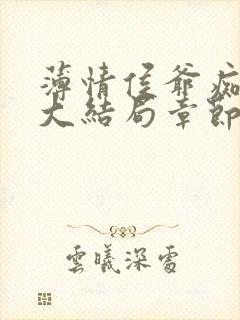 薄情侯爷痴
大結局章節
雲曦深處